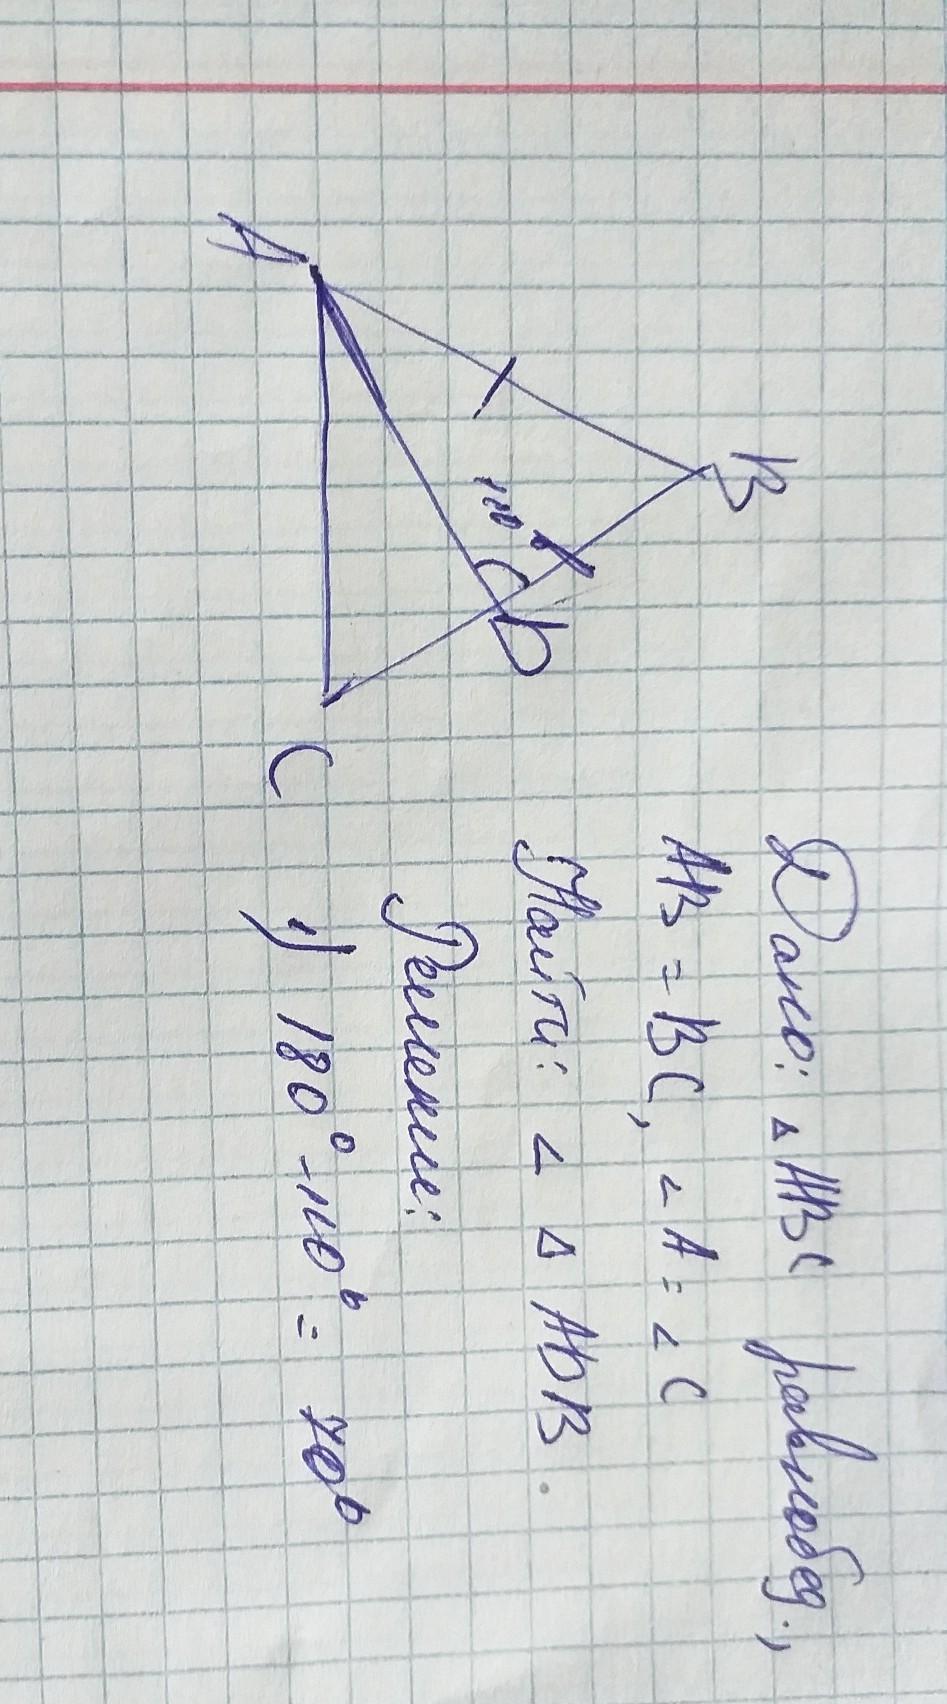 B
A
110°
D
C
Дано: △ABC равнобед.,
AB = BC, ∠A = ∠C
Найти: ∠ △ ADB.
Решение:
1) 180° - 110° = 70°